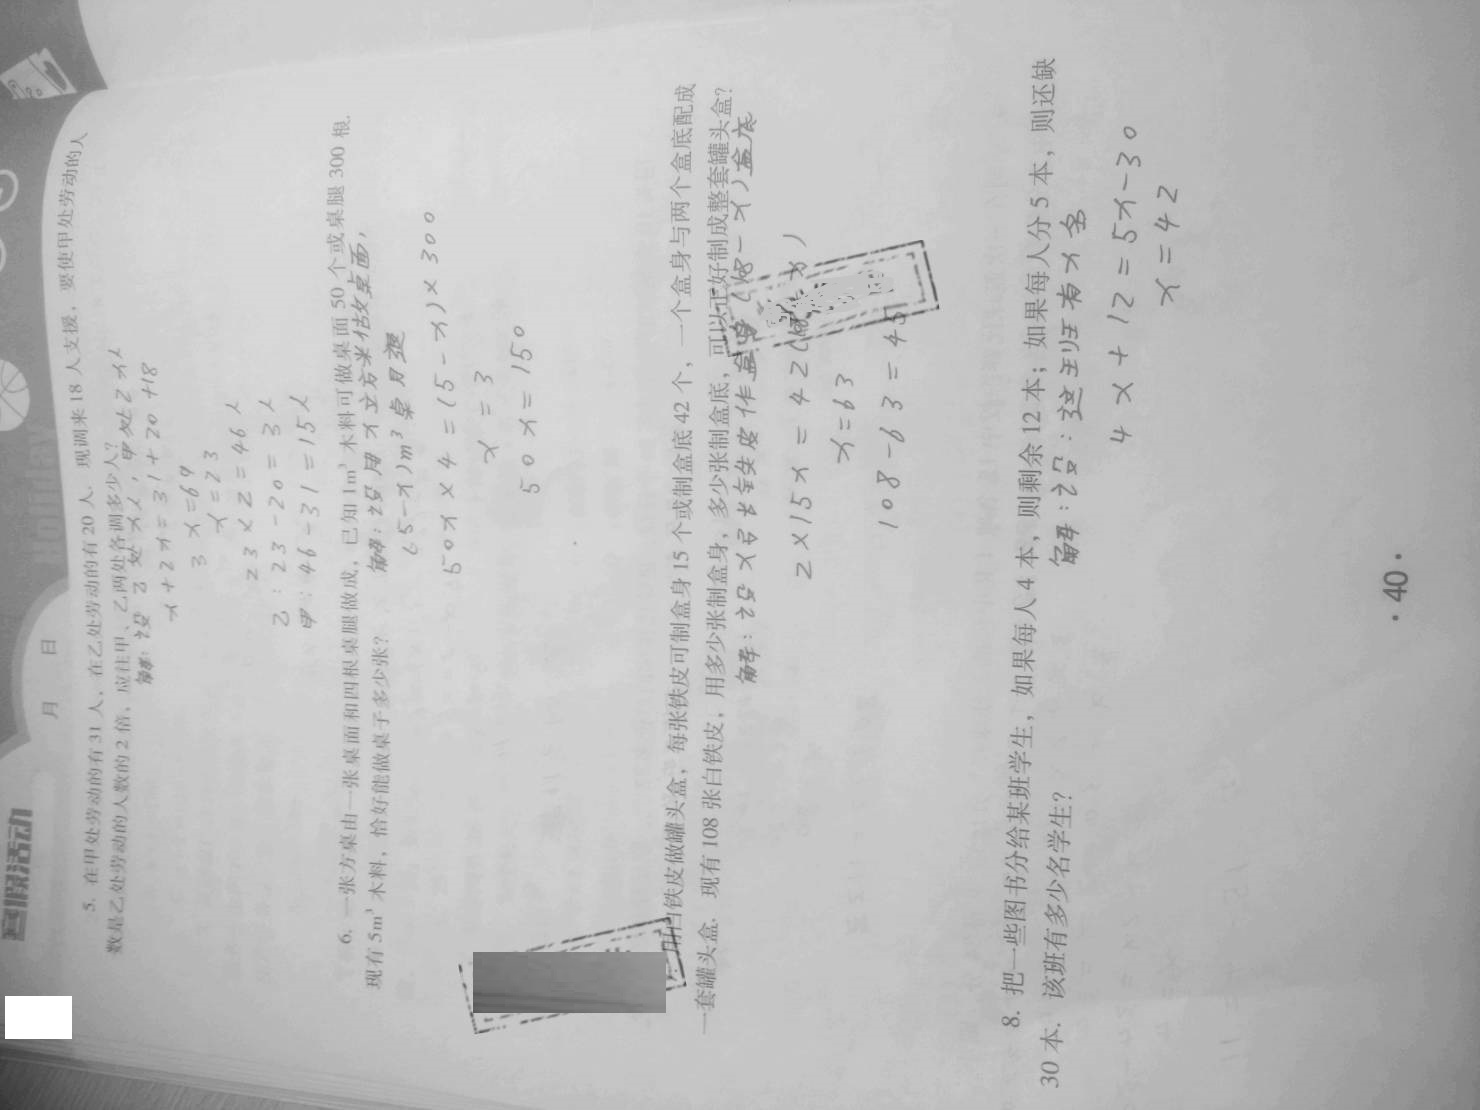 寒假活动
月 日
Holiday
5. 在甲处劳动的有31人，在乙处劳动的有20人．现调来18人支援，要使甲处劳动的人
数是乙处劳动的人数的2倍，应往甲、乙两处各调多少人？
解：设乙处x人，甲处2x人
x+2x=31+20+18
3x=69
x=23
23×2=46人
乙：23-20=3人
甲：46-31=15人
6. 一张方桌由一张桌面和四根桌腿做成，已知1m³木料可做桌面50个或桌腿300根．
现有5m³木料，恰好能做桌子多少张？
解：设用x立方米估故桌面，
(5-x)m³桌刃腿
50x×4=(5-x)×300
x=3
50x=150
7. 用白铁皮做罐头盒，每张铁皮可制盒身15个或制盒底42个，一个盒身与两个盒底配成
一套罐头盒．现有108张白铁皮，用多少张制盒身，多少张制盒底，可以正好制成整套罐头盒？
解：设x张铁皮作盒身(108-x)盒底
2×15x=42(108-x)
x=63
108-63=45
8. 把一些图书分给某班学生，如果每人4本，则剩余12本；如果每人分5本，则还缺
30本．该班有多少名学生？
解：设：这个班有x名
4x+12=5x-30
x=42
·40·